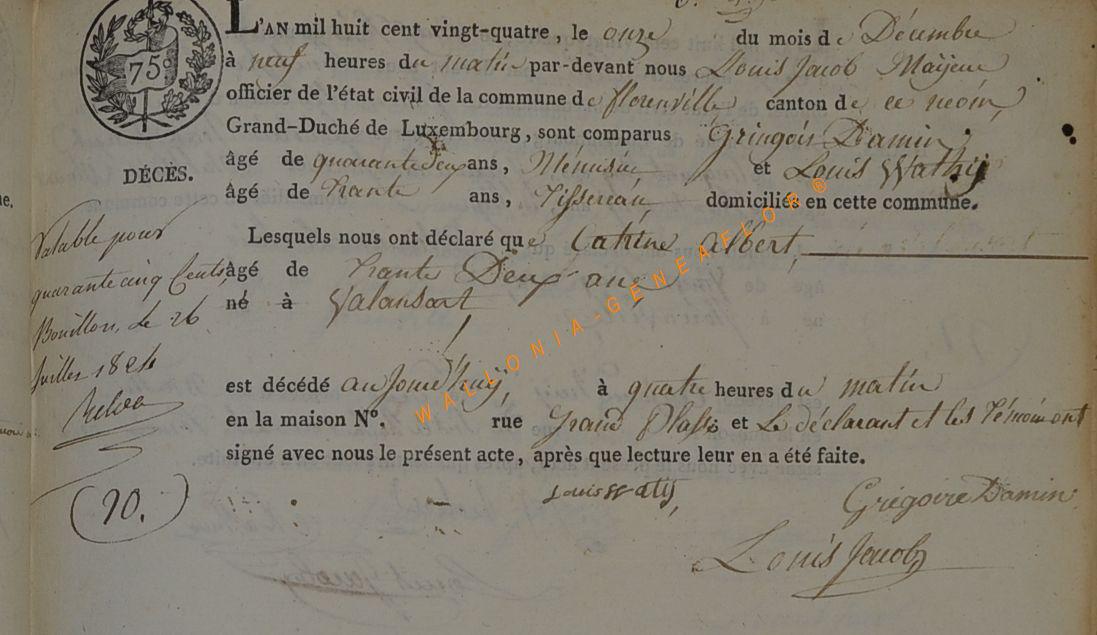 L'AN mil huit cent vingt-quatre, le onze du mois de Décembre
à neuf heures du matin par-devant nous Louis Jacob Maÿeur
officier de l'état civil de la commune de florenville, canton de ce nom,
Grand-Duché de Luxembourg, sont comparus Gringois Damin,
âgé de quarante deux ans, Ménusie et Louis Wathij
âgé de trante ans, Tisserau, domiciliés en cette commune.
Lesquels nous ont déclaré que Catrine albert,
âgé de trante Deux ans
né à Valansart
est décédé aujourd'huÿ, à quatre heures du matin
en la maison N°. rue Grand Plasse et Le déclarant et les témoin ont
signé avec nous le présent acte, après que lecture leur en a été faite.
Louis Watij,
Grégoire Damin
Louis Jacob
75
DÉCÈS.
Valable pour
quarante cinq Cents,
Bouillon, le 26
Juillet 1824
(90.)
WALLONIA-GENEAFLOR®